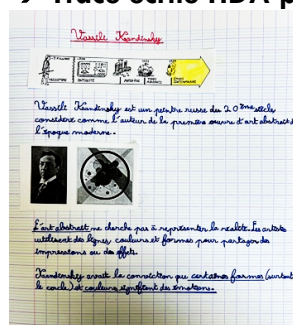 Trace écrite HDA p
Vassily Kandinsky
Vassili Kandinsky est un peintre russe du 20ème siècle
considéré comme l'auteur de la première œuvre d'art abstrait d
l'époque moderne.
L'art abstrait ne cherche pas à représenter la réalité. Les artistes
utilisent des lignes, couleurs et formes pour partager des
impressions ou des effets.
Kandinsky avait la conviction que certaines formes (surtout
le cercle) et couleurs signifient des émotions.